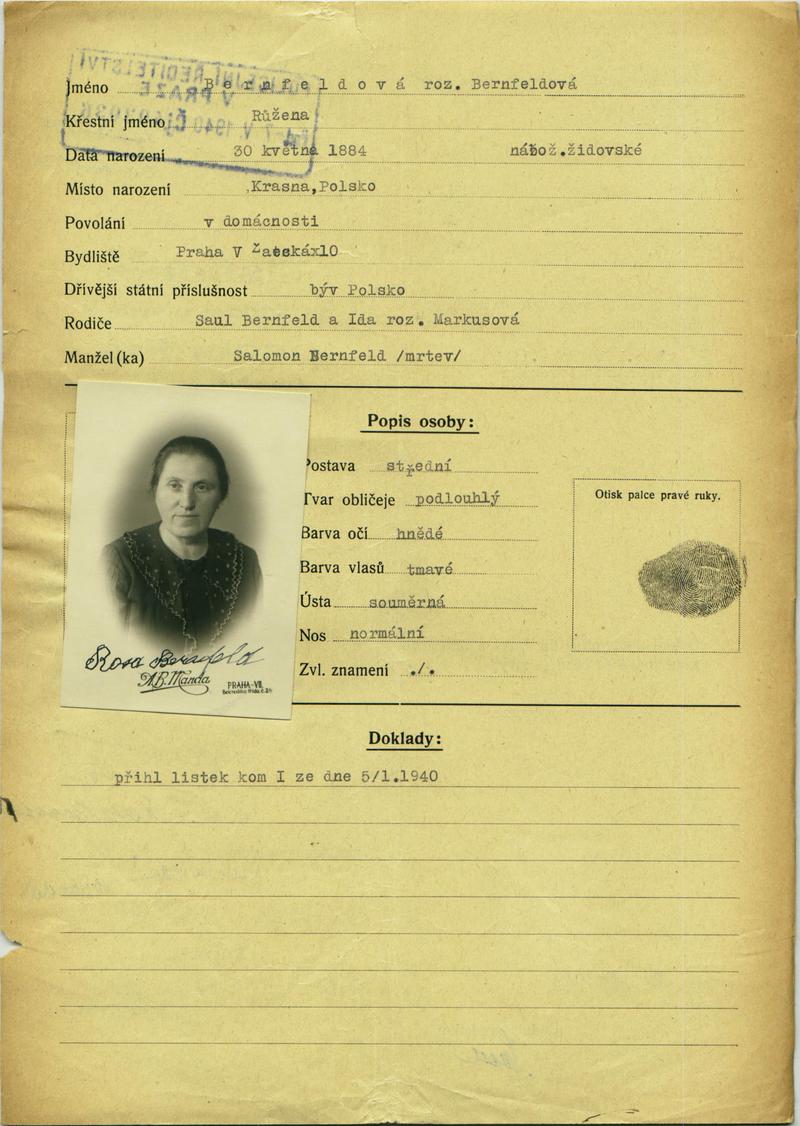 Jméno B e r n f e l d o v á roz. Bernfeldová
Křestní jméno Růžena
Data narození 30 května 1884 nábož.židovské
Místo narození Krasna,Polsko
Povolání v domácnosti
Bydliště Praha V Žateská 10
Dřívější státní příslušnost býv Polsko
Rodiče Saul Bernfeld a Ida roz. Markusová
Manžel(ka) Salomon Bernfeld /mrtev/
Popis osoby:
Postava střední
Tvar obličeje podlouhlý
Barva očí hnědé
Barva vlasů tmavé
Ústa souměrná
Nos normální
Zvl. znamení ./.
Otisk palce pravé ruky.
Rosa Bernfeld
PRAHA-VII.
Doklady:
přihl listek kom I ze dne 5/1.1940